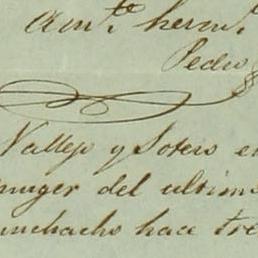 Am.te herm.
Pedro
Vallejo y Sotero e
muger del ultimo
muchacho hace tre